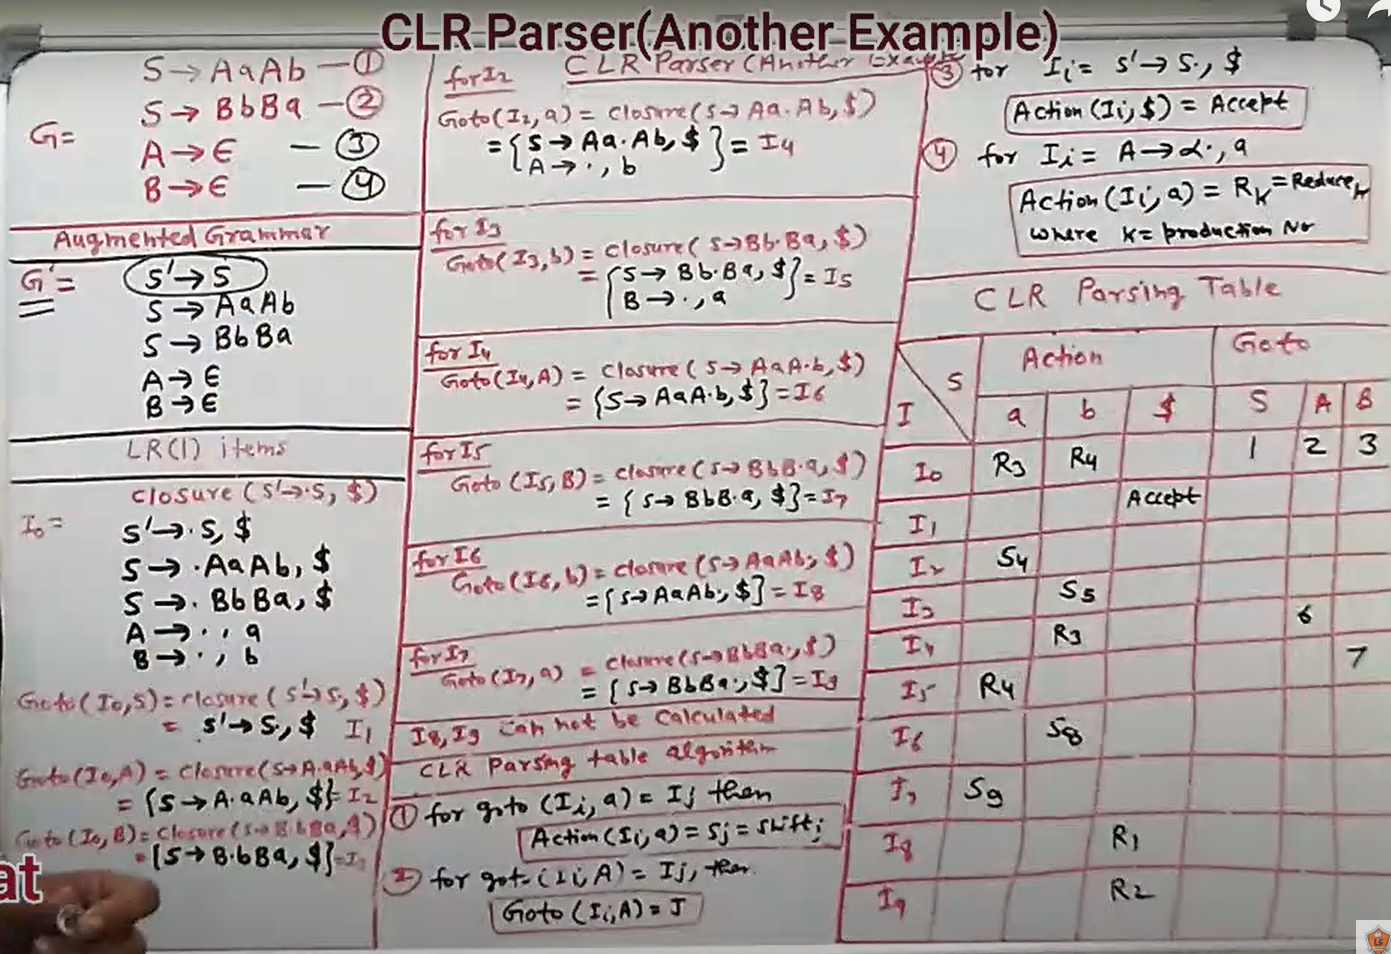 CLR Parser(Another Example)
S → AaAb — ①
G= S → BbBa — ②
A → ϵ — ③
B → ϵ — ④
Augmented Grammar
G'= S' → S
S → AaAb
S → BbBa
A → ϵ
B → ϵ
LR(1) items
closure (S'→.S, $)
I0 = S' → .S, $
S → .AaAb, $
S → .BbBa, $
A → ., a
B → ., b
Goto(I0,S) = closure (S'→S., $)
= S'→S., $ I1
Goto(I0,A) = closure(S→A.aAb,$)
= {S→A.aAb, $} = I2
Goto(I0,B) = closure(S→B.bBa,$)
= {S→B.bBa, $} = I3
at
CLR Parser (Another Example
for I2
Goto(I2,a) = closure(S→Aa.Ab,$)
= {S→Aa.Ab, $
A→., b} = I4
for I3
Goto(I3,b) = closure(S→Bb.Ba,$)
= {S→Bb.Ba, $
B→., a} = I5
for I4
Goto(I4,A) = closure(S→AaA.b,$)
= {S→AaA.b,$} = I6
for I5
Goto (I5,B) = closure(S→BbB.a,$)
= {S→BbB.a, $} = I7
for I6
Goto(I6,b) = closure(S→AaAb.,$)
= {S→AaAb., $} = I8
for I7
Goto(I7,a) = closure(S→BbBa.,$)
= {S→BbBa., $} = I9
I8,I9 can not be calculated
CLR Parsing table algorithm
① for goto (Ii,a) = Ij then
Action(Ii,a) = Sj = shift j
② for goto (Ii,A) = Ij, then
Goto (Ii,A) = J
③ for Ii = S'→S., $
Action(Ii,$) = Accept
④ for Ii = A→α., a
Action(Ii,a) = RK = Reduce K
where K = production No
CLR Parsing Table
S Action Goto
I a b $ S A B
I0 R3 R4 1 2 3
I1 Accept
I2 S4
I3 S5
I4 R3 6
I5 R4 7
I6 S8
I7 S9
I8 R1
I9 R2